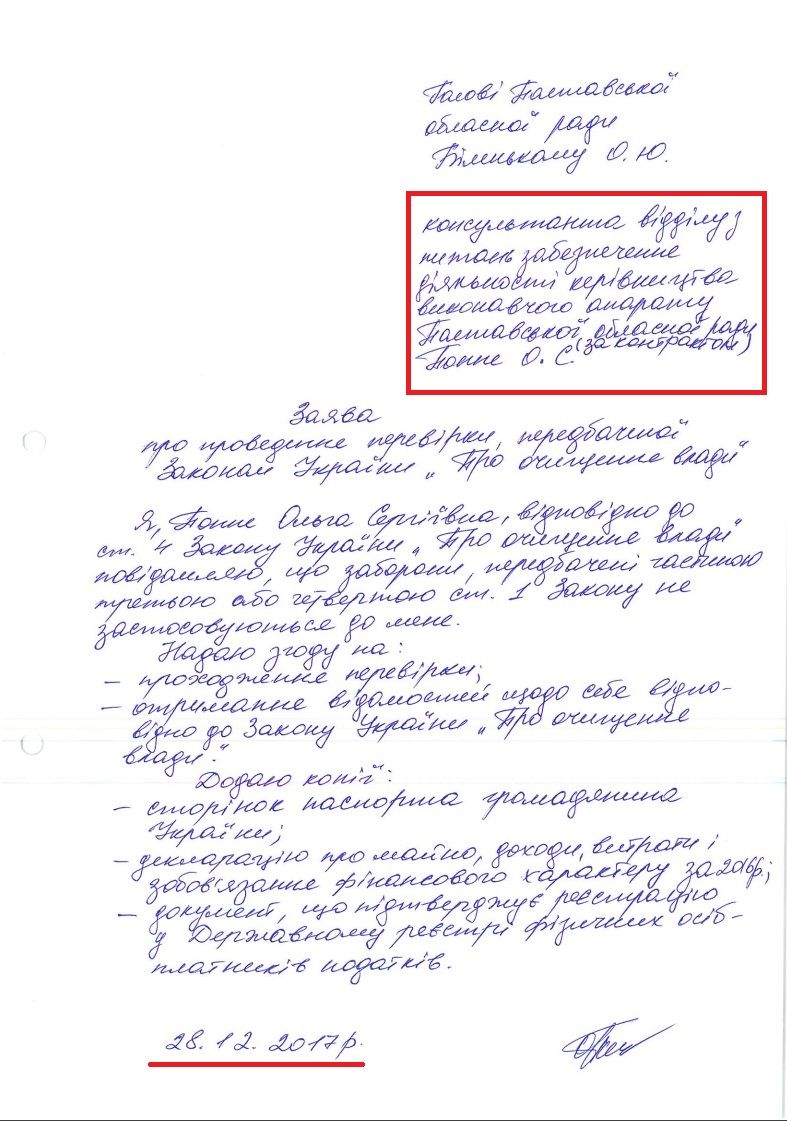 Голові Полтавської
обласної ради
Біленькому О.Ю.
консультанта відділу з
питань забезпечення
діяльності керівництва
виконавчого апарату
Полтавської обласної ради
Попне О. С. (за контрактом)
Заява
про проведення перевірки, передбаченої
Законом України „Про очищення влади"
Я, Попне Ольга Сергіївна, відповідно до
ст. 4 Закону України „Про очищення влади"
повідомляю, що заборони, передбачені частиною
третьою або четвертою ст. 1 Закону не
застосовуються до мене.
Надаю згоду на:
– проходження перевірки;
– отримання відомостей щодо себе відпо-
відно до Закону України „Про очищення
влади".
Додаю копії:
– сторінок паспорта громадянина
України;
– декларацію про майно, доходи, витрати і
зобов'язання фінансового характеру за 2016р;
– документ, що підтверджує реєстрацію
у Державному реєстрі фізичних осіб-
платників податків.
28. 12. 2017р.